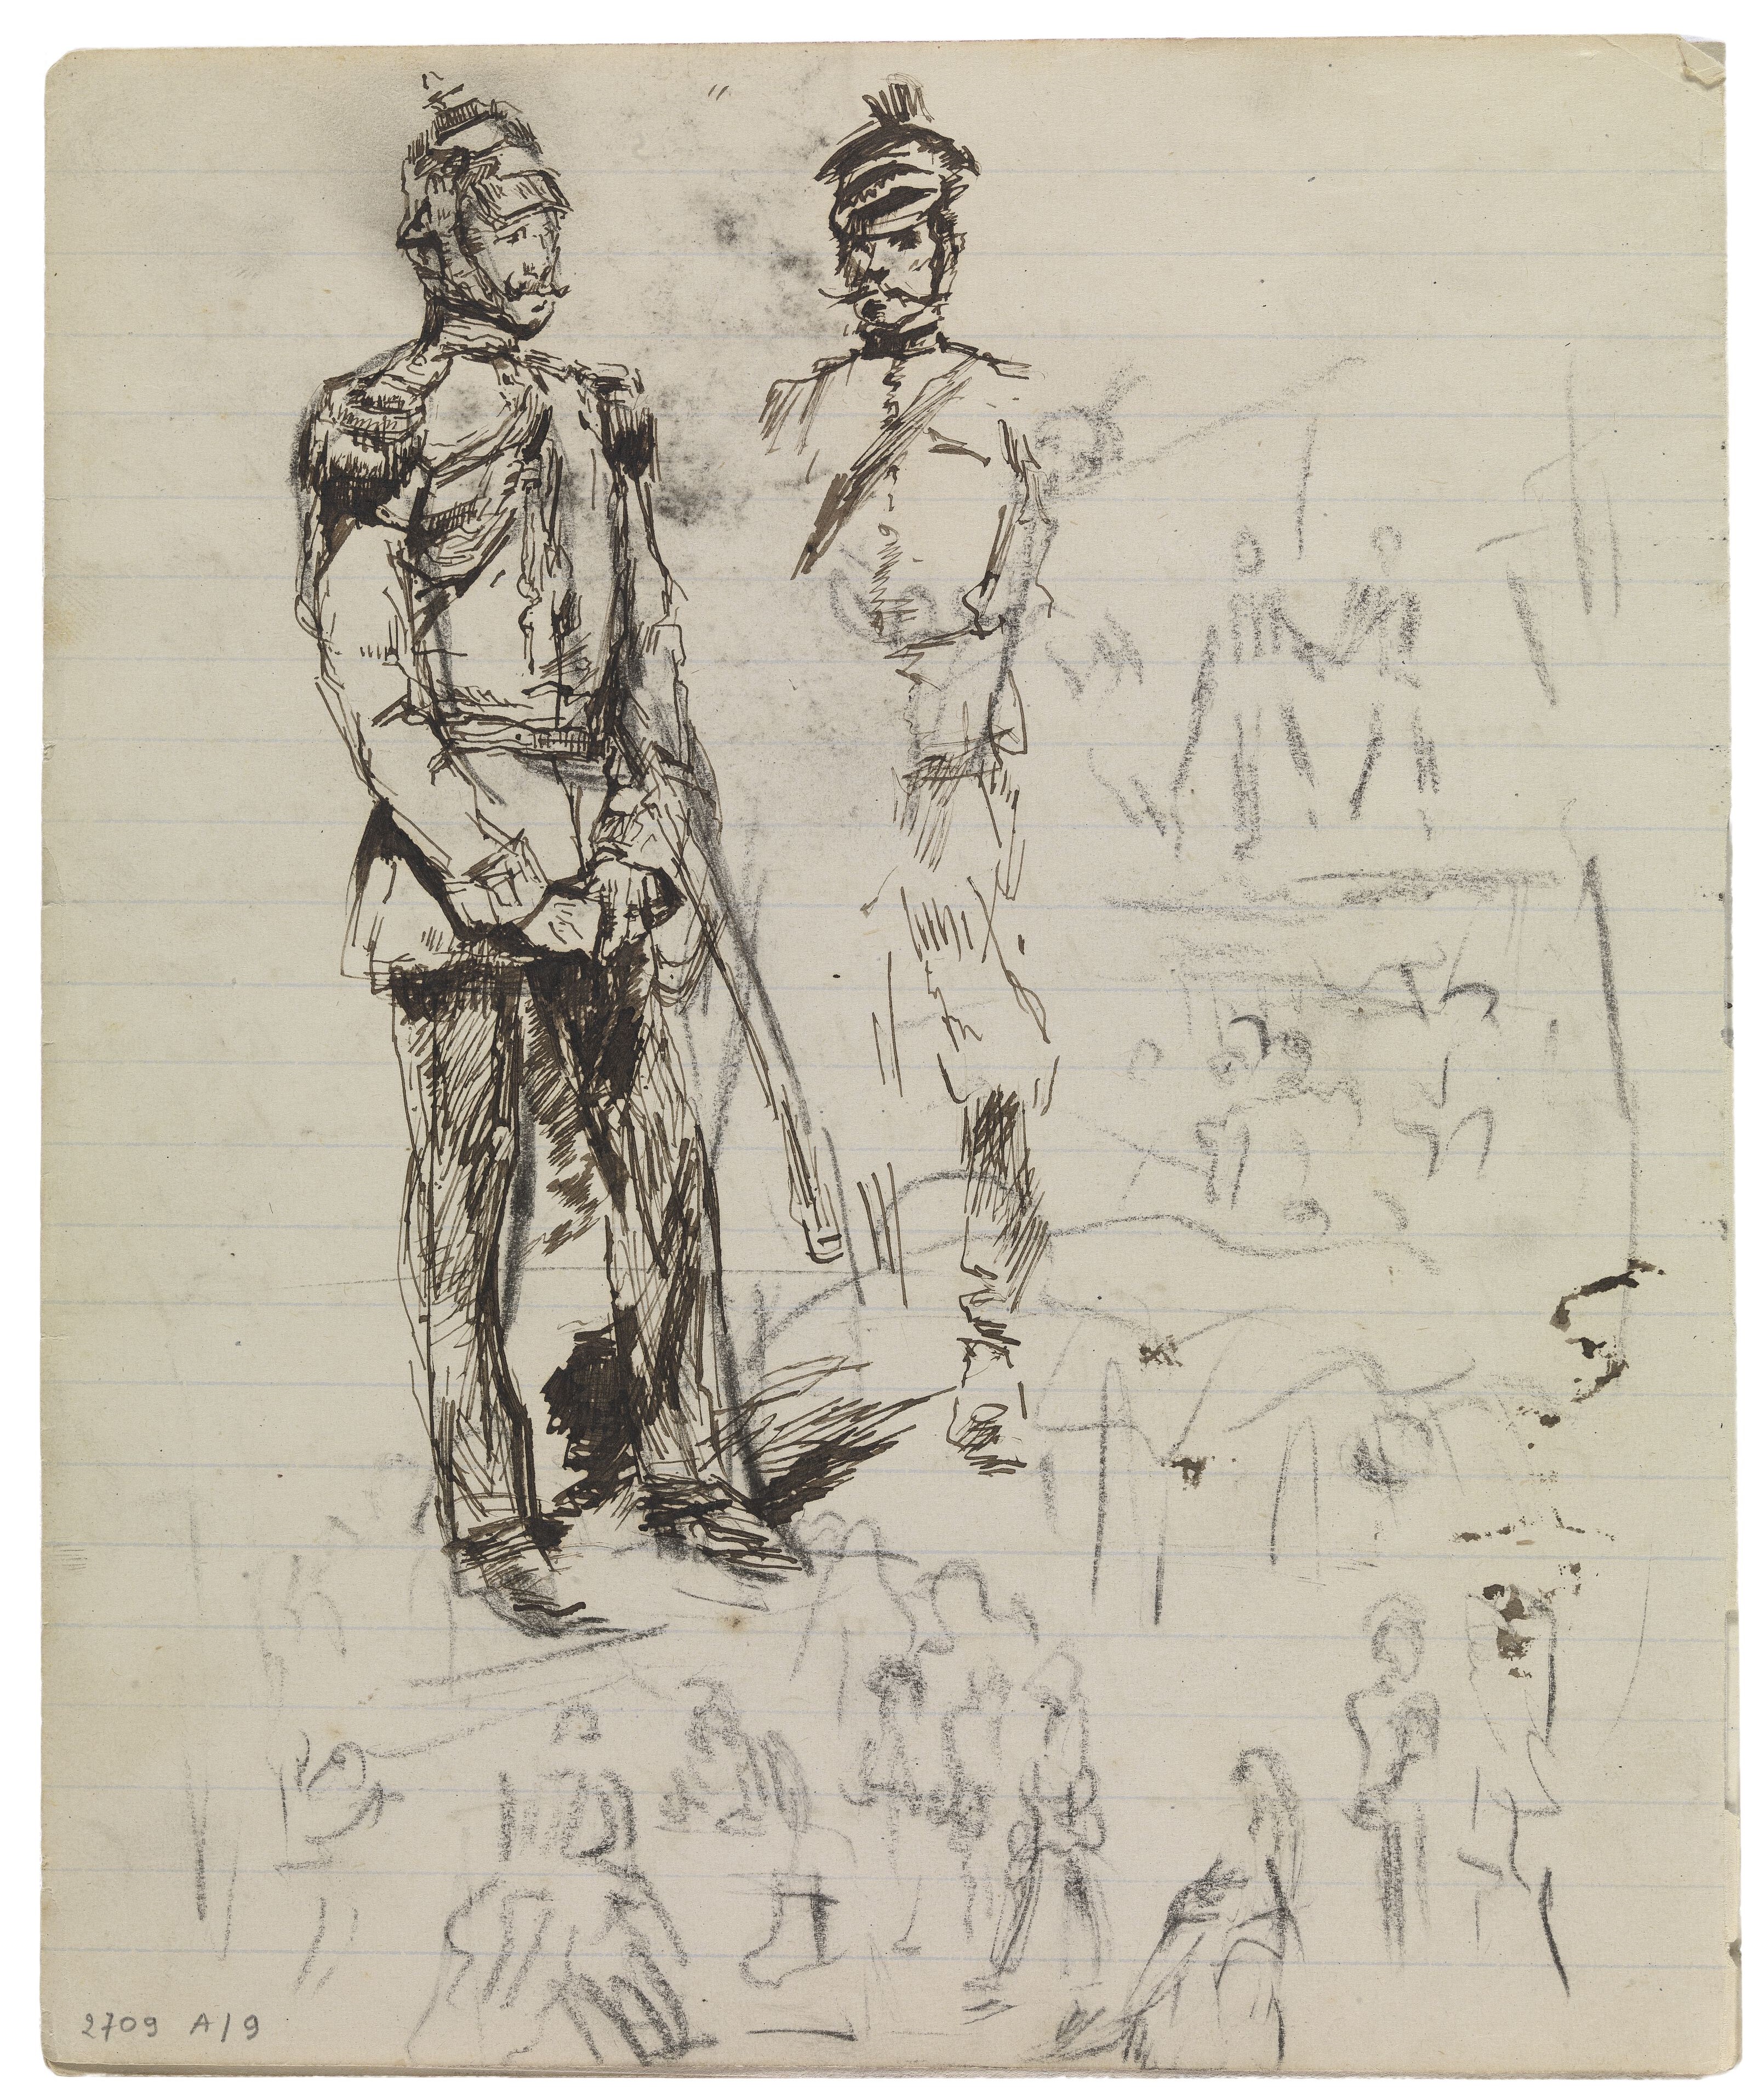 2709 A/9